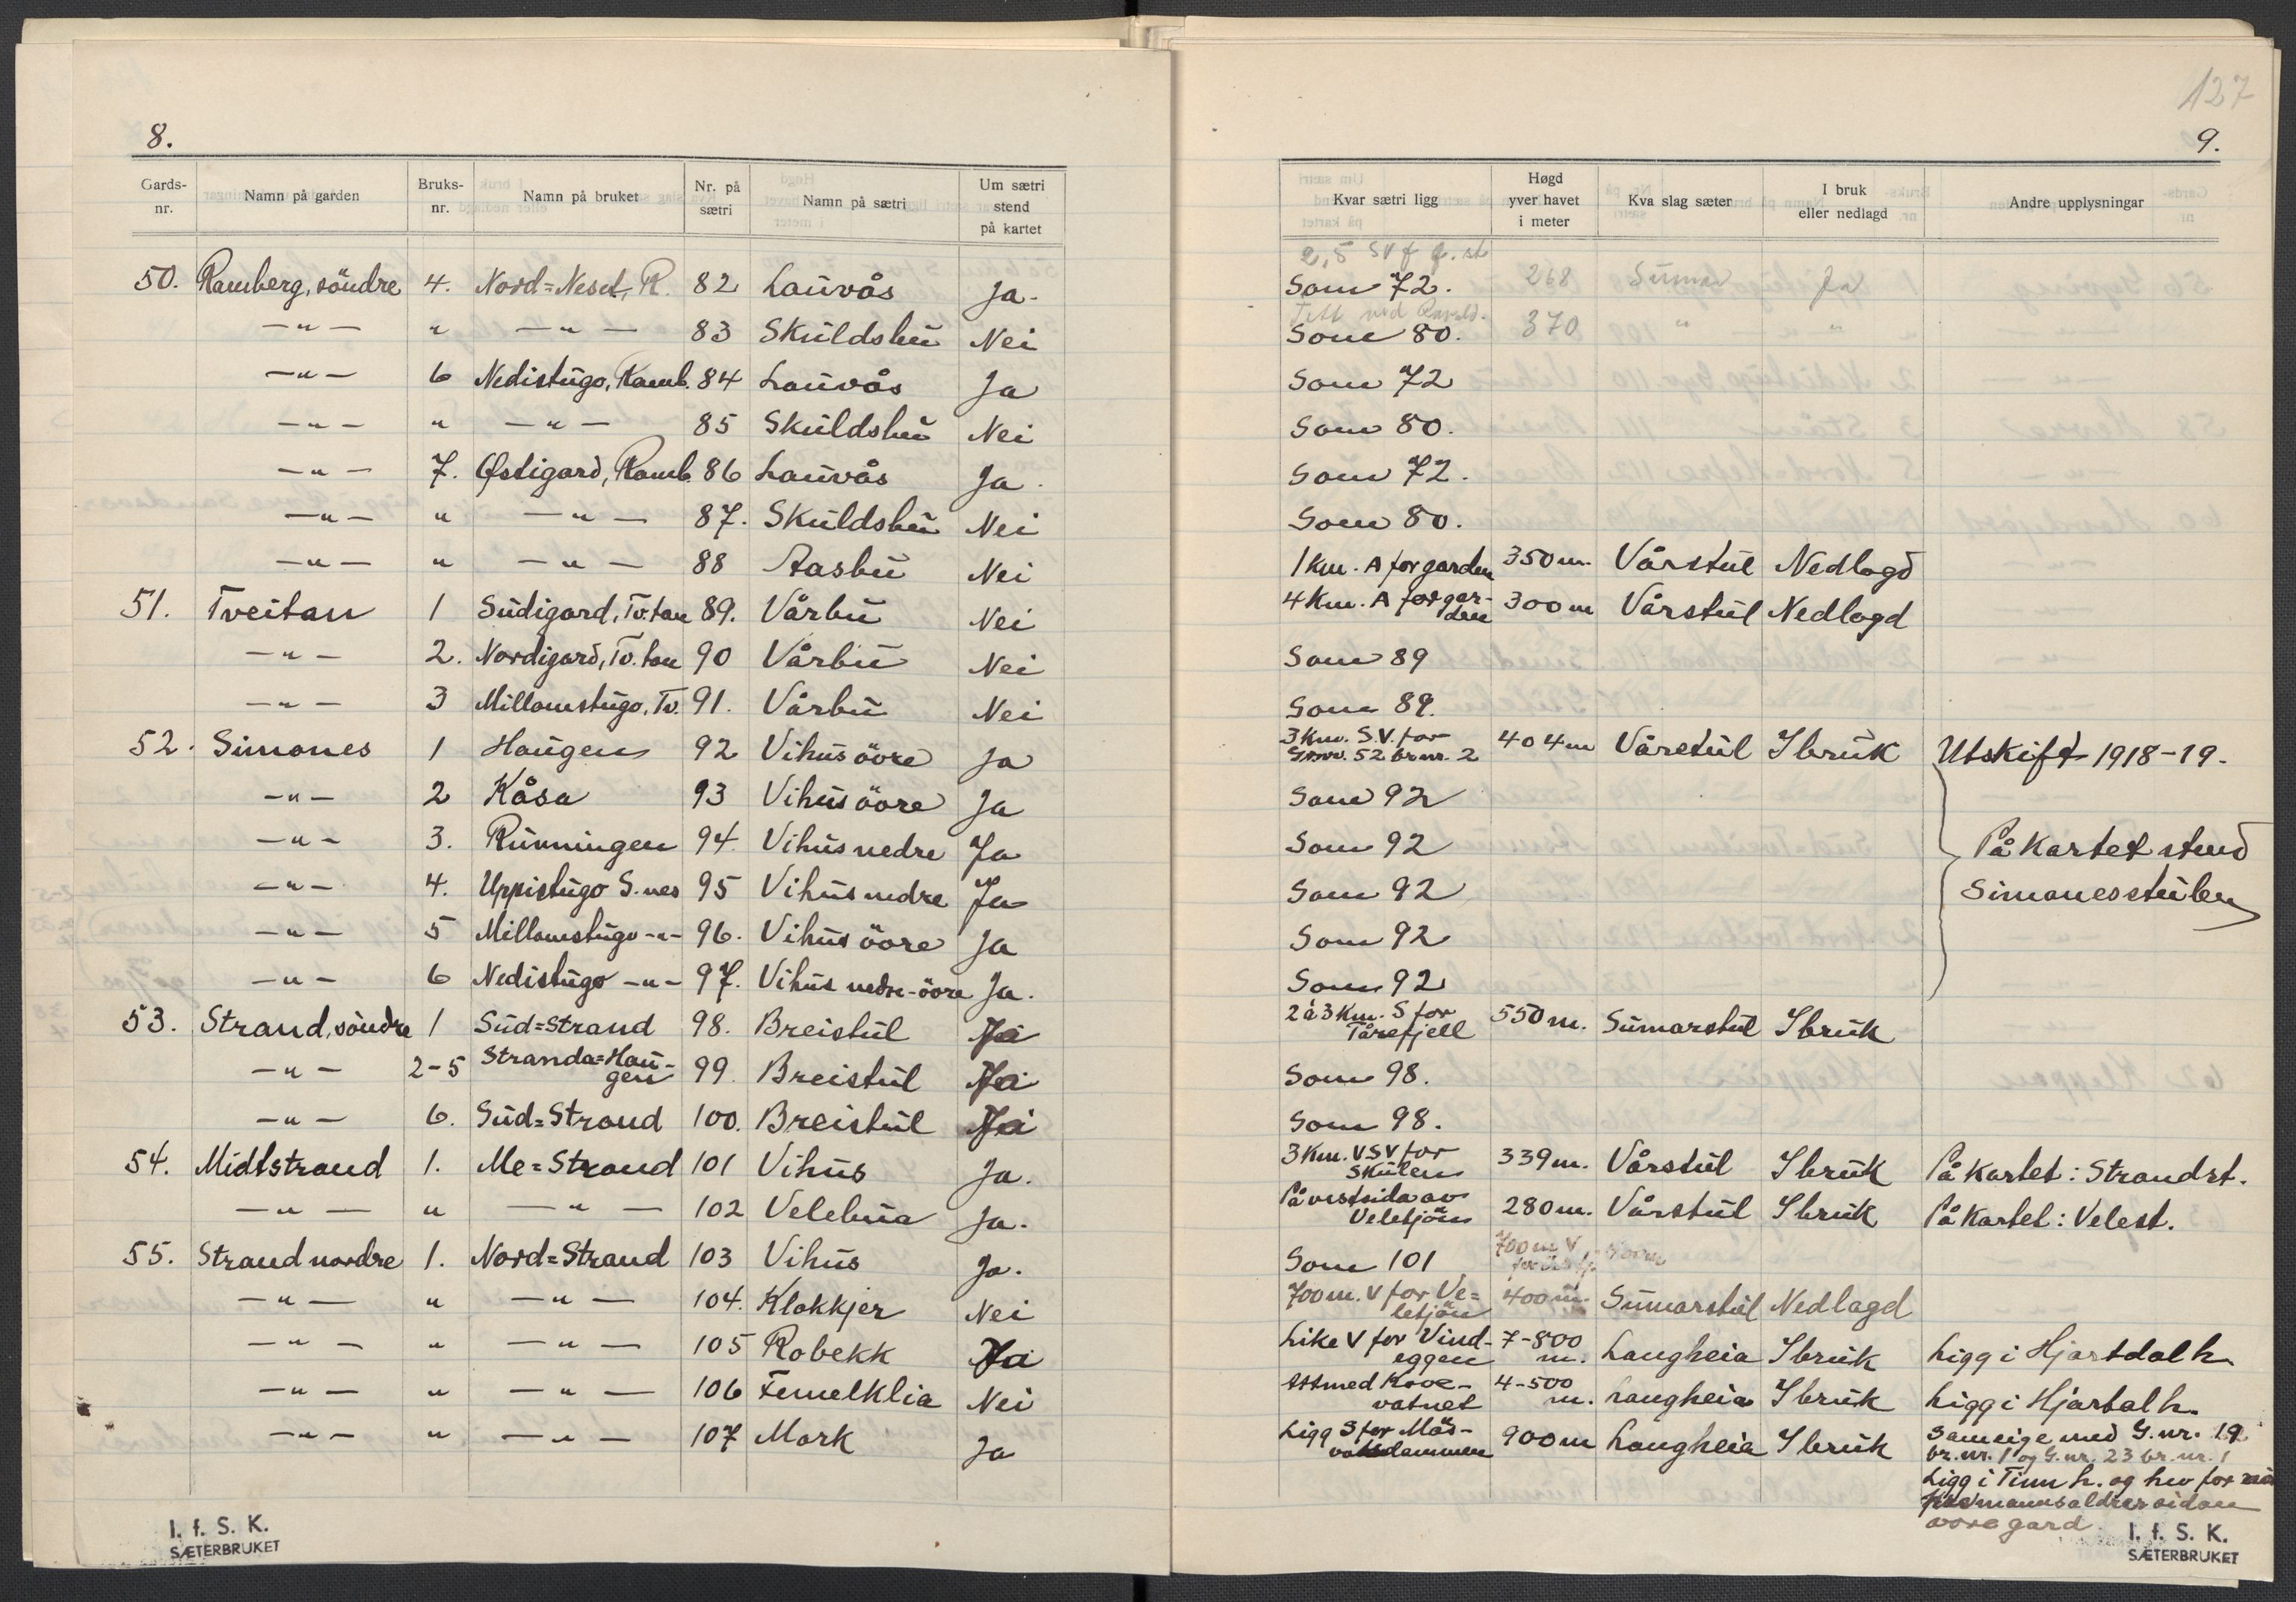 8.
Gards-nr. Namn på garden Bruks-nr. Namn på bruket Nr. på sætri Namn på sætri Um sætri stend på kartet
50. Ramberg, söndre 4. Nord=Neset, R. 82 Lauvås Ja.
—"— " —"— 83 Skuldsbu Nei
—"— 6 Nedistugo, Ramb. 84 Lauvås Ja
—"— " —"— 85 Skuldsbu Nei
—"— 7. Østigard, Ramb. 86 Lauvås Ja.
—"— " —"— 87. Skuldsbu Nei
—"— " —"— 88 Aasbu Nei
51. Tveitan 1 Sudigard, Tv.tan 89. Vårbu Nei
—"— 2. Nordigard, Tv.tan 90 Vårbu Nei
—"— 3 Millomstugo, Tv. 91. Vårbu Nei
52. Simones 1 Haugen 92 Vihus övre Ja
—"— 2 Kåsa 93 Vihus övre Ja
—"— 3. Runningen 94. Vihus nedre Ja
—"— 4. Uppistugo S.nes 95 Vihus nedre Ja
—"— 5 Millomstugo -"- 96. Vihus övre Ja
—"— 6 Nedistugo -"- 97. Vihus nedre-övre Ja.
53. Strand, söndre 1 Sud=Strand 98. Breistul Ja
—"— 2-5 Stranda=Haugen 99. Breistul Ja
—"— 6. Sud=Strand 100. Breistul Ja
54. Midtstrand 1. Me=Strand 101 Vihus Ja.
—"— " —"— 102 Velebua Ja.
55. Strand nordre 1. Nord=Strand 103 Vihus Ja.
—"— " —"— 104. Klokkjer Nei
—"— " —"— 105 Robekk Ja
—"— " —"— 106 Femelklia Nei
—"— " —"— 107 Mork Ja
I. f. S. K.
SÆTERBRUKET
127
9.
Kvar sætri ligg Høgd yver havet i meter Kva slag sæter I bruk eller nedlagd Andre upplysningar
2,5 SV f g. st
Som 72. 268 Sumar Ja
Tett ved
Som 80. 370 " "
Som 72
Som 80.
Som 72.
Som 80.
1 km. A for garden 350 m. Vårstul Nedlagd
4 Km. A for garden 300 m Vårstul Nedlagd
Som 89
Som 89.
3 Km. S.V. for G.nr. 52 br.nr. 2 404 m Vårstul I bruk Utskift 1918-19.
Som 92
Som 92 På kartet stend
Som 92 Simonesstulen
Som 92
Som 92
2 à 3 Km. S for Tårefjell 550 m. Sumarstul I bruk
Som 98.
Som 98.
3 Km. VSV for Skulen 339 m. Vårstul I bruk På kartet: Strandst.
På vestsida av Veletjön 280 m. Vårstul I bruk På kartet: Velest.
Som 101 700 m V
700 m. V for Veletjön 400 m. Sumarstul Nedlagd
Like V for Vindeggen 7-800 m. Langheia I bruk Ligg i Hjartdal h.
Attmed Kovevatnet 4-500 m. Langheia I bruk Ligg i Hjartal h.
Ligg S for Mösvatsdammen 900 m Langheia I bruk Sameige med G.nr. 19
br.nr. 1 og G.nr. 23 br.nr. 1
Ligg i Tinn h. og hev for
mannsaldrer sidan
vore gard.
I. f. S. K.
SÆTERBRUKET